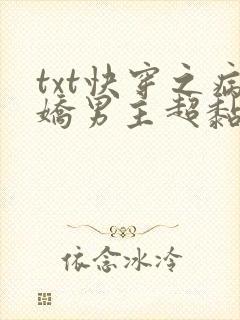 txt快穿之病
娇男主超黏
依念冰冷